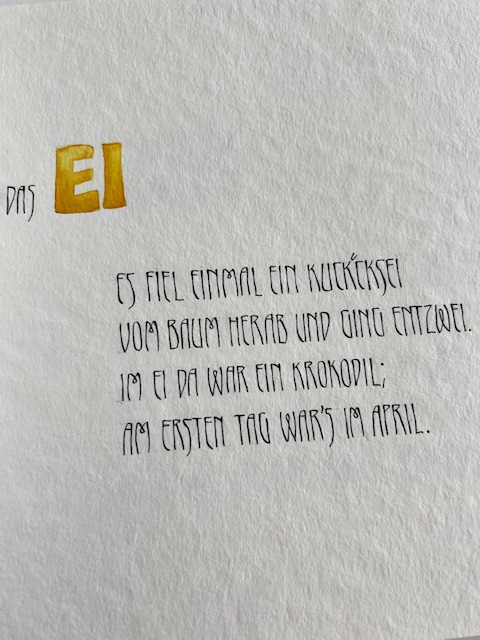 DAS EI
ES FIEL EINMAL EIN KUCKUCKSEI
VOM BAUM HERAB UND GING ENTZWEI.
IM EI DA WAR EIN KROKODIL;
AM ERSTEN TAG WAR'S IM APRIL.